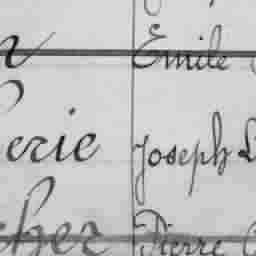 Emile
erie Joseph
cher Pierre